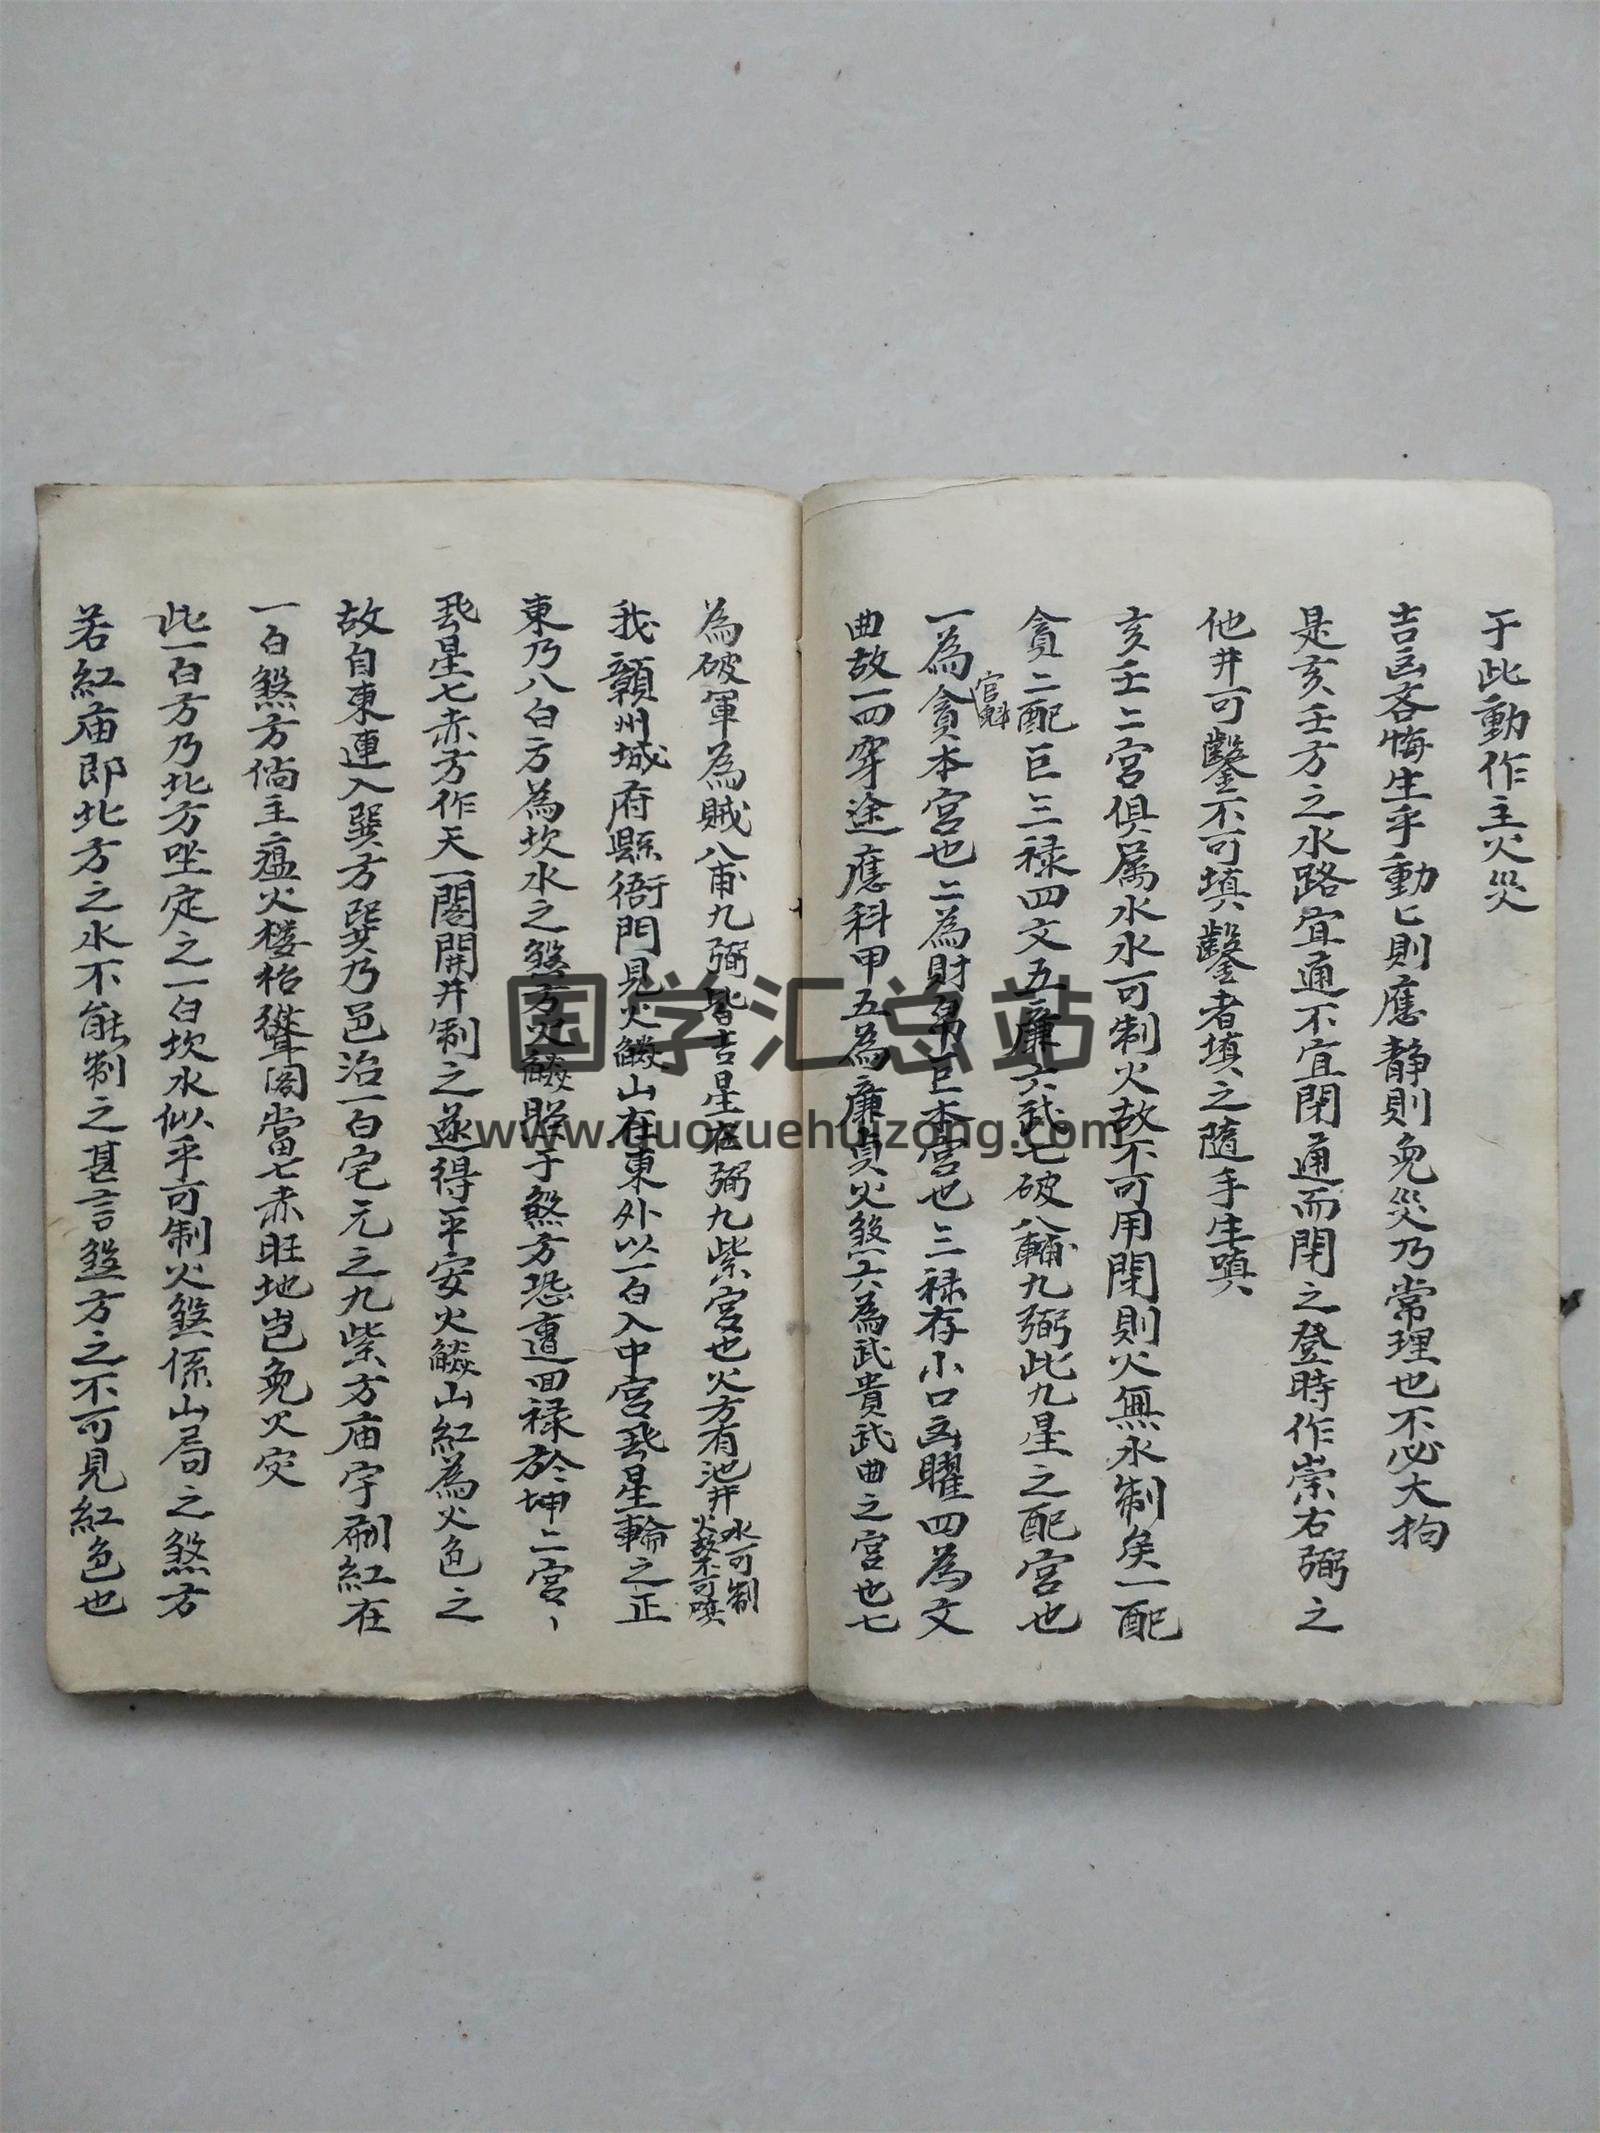 于此動作主火災
吉凶吝悔生乎動匕則應靜則免災乃常理也不必大拘
是亥壬方之水路宜通不宜閉通而閉之登時作崇右弼之
他井可鑿不可填鑿者填之隨手生嗔
亥壬二宮俱屬水水可制火故不可用閉則火無水制矣一配
貪二配巨三禄四文五廉六武七破八輔九弼此九星之配宮也
官魁
一為貪本宮也二為財帛巨本宮也三禄存小口凶曜四為文
曲故一四穿途應科甲五為廉貞火煞六為武貴武曲之宮也七
為破軍為賊八甫九弼皆吉星右弼九紫宮也火方有池井水可制
火故不可嗔
我贛州城府縣衙門見火山在東外以一白入中宮飛星輪之正
東乃八白方為坎水之煞方火照于煞方恐遭回禄於坤二宮、
飛星七赤方作天一閣開井制之遂得平安火山紅為火色之
故自東連入巽方巽乃邑治一白宅元之九紫方庙宇刷紅在
一白煞方倘主瘟火楼枱聳閣當七赤旺地岂免火灾
此一白方乃北方坐定之一白坎水似乎可制火煞係山局之煞方
若紅庙即北方之水不能制之甚言煞方之不可見紅色也
国学汇总站
www.guoxuehuizong.com